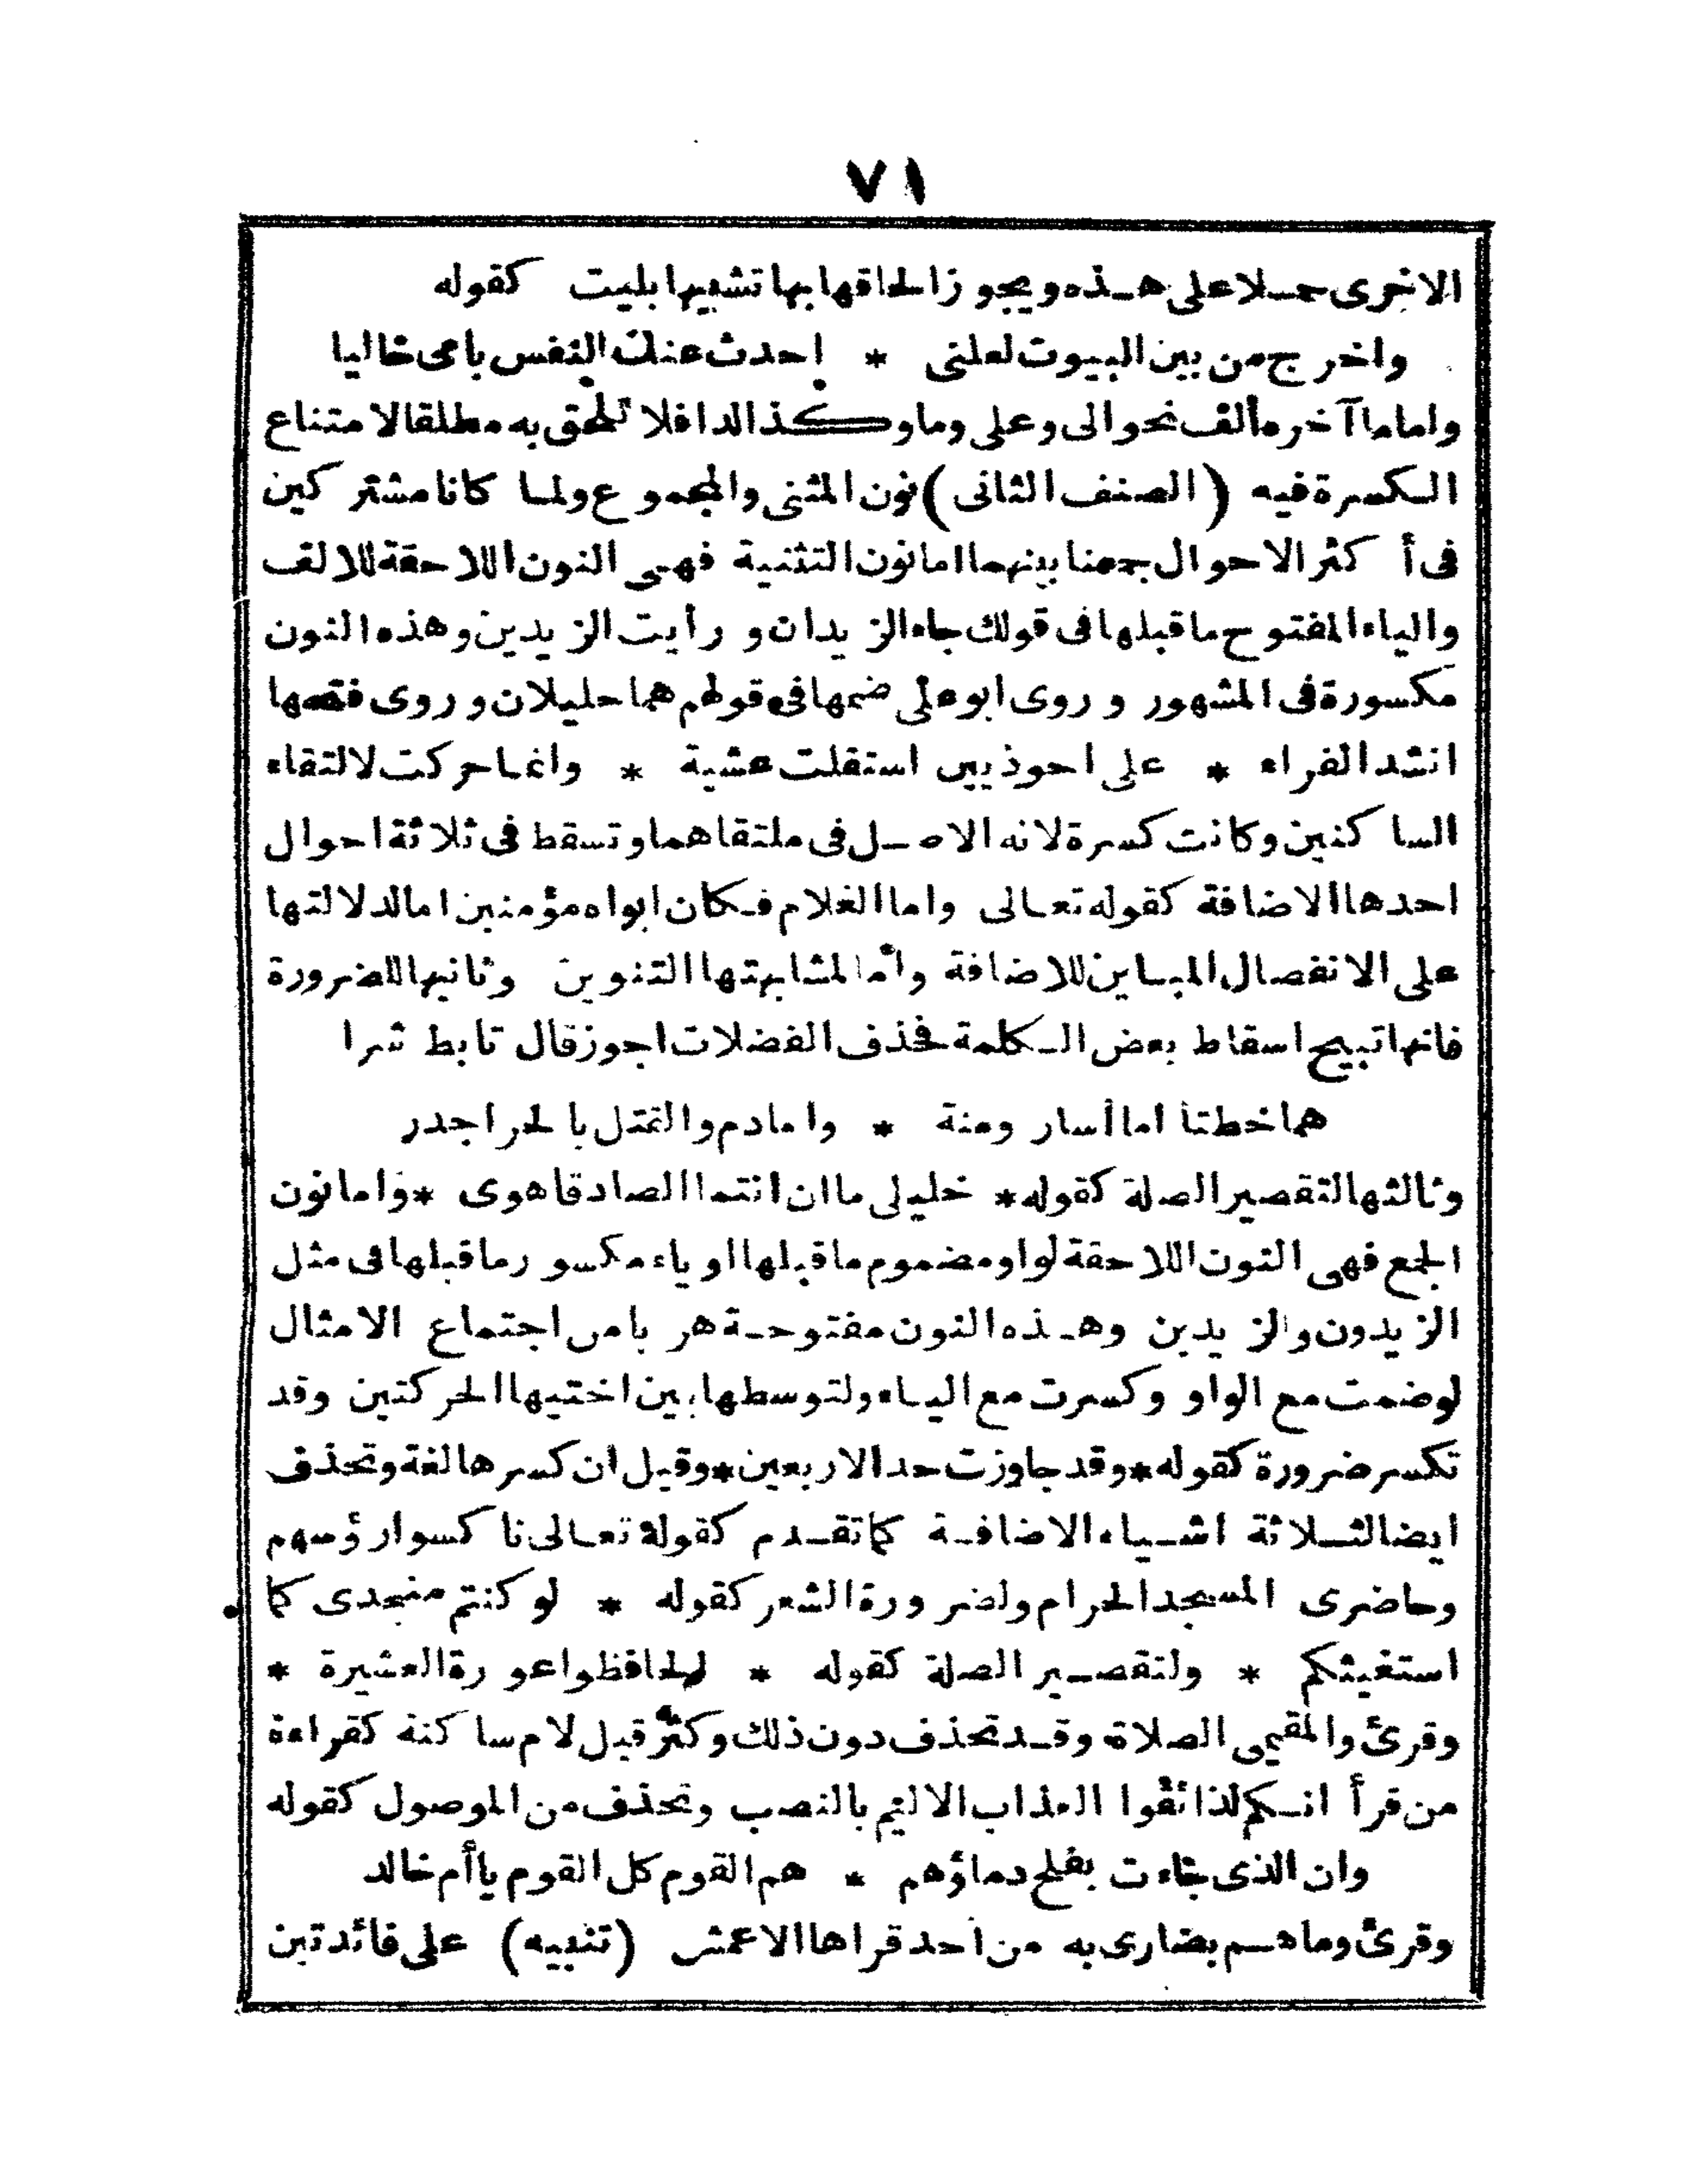 ٧١
الاخرى حملا على هذه ويجوز الحاقها بها تشبيها بليت كقوله
واخرج من بين البيوت لعلنى * احدث عنك النفس يا مى خاليا
واما ما آخره ألف نحو الى وعلى وما وكذا لدا فلا تلحق به مطلقا لامتناع
الكسرة فيه (الصنف الثانى) نون المثنى والمجموع ولما كانا مشتركين
فى أكثر الاحوال جمعنا بينهما اما نون التثنية فهى النون اللاحقة للالف
والياء المفتوح ما قبلها فى قولك جاء الزيدان ورأيت الزيدين وهذه النون
مكسورة فى المشهور وروى ابو على ضمها فى قولهم هما خليلان وروى فتحها
انشد الفراء * على احوذيين استقلت عشية * وانما حركت لالتقاء
الساكنين وكانت كسرة لانه الاصل فى ملتقاهما وتسقط فى ثلاثة احوال
احدها الاضافة كقوله تعالى واما الغلام فكان ابواه مؤمنين اما لدلالتها
على الانفصال المباين للاضافة واما لمشابهتها التنوين وثانيها للضرورة
فانها تبيح اسقاط بعض الكلمة فحذف الفضلات اجوز قال تابط شرا
هما خطتا اما أسار ومنة * واما دم والقتل بالحر اجدر
وثالثها لتقصير الصلة كقوله * خليلى ما ان انتما الصادقا هوى * واما نون
الجمع فهى النون اللاحقة لواو مضموم ما قبلها او ياء مكسور ما قبلها فى مثل
الزيدون والزيدين وهذه النون مفتوحة هربا من اجتماع الامثال
لو ضمت مع الواو وكسرت مع الياء ولتوسطها بين اختيها الحركتين وقد
تكسر ضرورة كقوله * وقد جاوزت حد الاربعين * وقيل ان كسرها لغة وتحذف
ايضا لثلاثة اشياء الاضافة كما تقدم كقوله تعالى ناكسوا رؤسهم
وحاضرى المسجد الحرام ولضرورة الشعر كقوله * لو كنتم منجدى كما
استغيثكم * ولتقصير الصلة كقوله * الحافظوا عورة العشيرة *
وقرئ والمقيمى الصلاة وقد تحذف دون ذلك وكثر قبل لام ساكنة كقراءة
من قرأ انكم لذائقوا العذاب الاليم بالنصب وتحذف من الموصول كقوله
وان الذى جاءت بفلج دماؤهم * هم القوم كل القوم يا أم خالد
وقرئ وما هم بضارى به من احد قراها الاعمش (تنبيه) على فائدتين